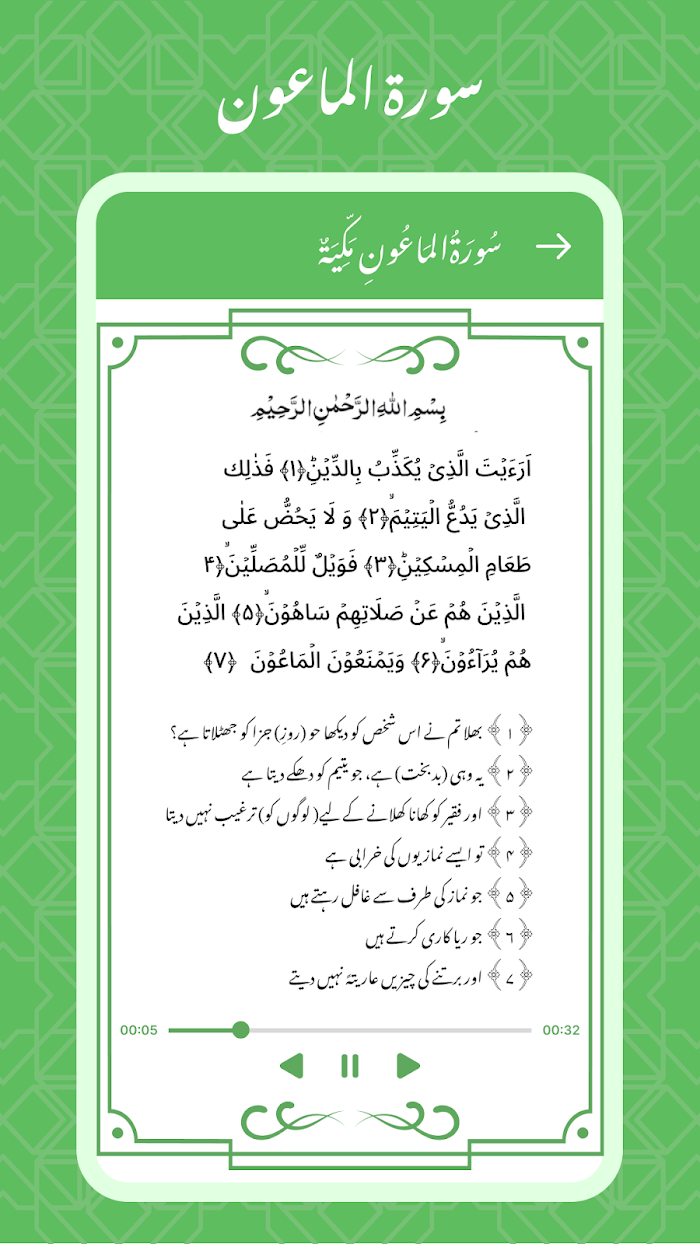 سورة الماعون
سُورَةُ المَاعُونِ مَكِّيَةٌ
بِسْمِ اللهِ الرَّحْمٰنِ الرَّحِيْمِ
اَرَءَيۡتَ الَّذِىۡ يُكَذِّبُ بِالدِّيۡنِؕ‏﴿۱﴾ فَذٰلِكَ
الَّذِىۡ يَدُعُّ الۡيَتِيۡمَۙ‏﴿۲﴾ وَ لَا يَحُضُّ عَلٰى
طَعَامِ الۡمِسۡكِيۡنِؕ‏﴿۳﴾ فَوَيۡلٌ لِّلۡمُصَلِّيۡنَۙ‏﴿۴
الَّذِيۡنَ هُمۡ عَنۡ صَلَاتِهِمۡ سَاهُوۡنَۙ‏﴿۵﴾ الَّذِيۡنَ
هُمۡ يُرَآءُوۡنَۙ‏﴿۶﴾ وَيَمۡنَعُوۡنَ الۡمَاعُوۡنَ ﴿۷﴾
﴿۱﴾ بھلا تم نے اس شخص کو دیکھا حو (روزِ) جزا کو جھٹلاتا ہے؟
﴿۲﴾ یہ وہی (بدبخت) ہے، جو یتیم کو دھکے دیتا ہے
﴿۳﴾ اور فقیر کو کھانا کھلانے کے لیے( لوگوں کو) ترغیب نہیں دیتا
﴿۴﴾ تو ایسے نمازیوں کی خرابی ہے
﴿۵﴾ جو نماز کی طرف سے غافل رہتے ہیں
﴿۶﴾ جو ریا کاری کرتے ہیں
﴿۷﴾ اور برتنے کی چیزیں عاریتہً نہیں دیتے
00:05 00:32